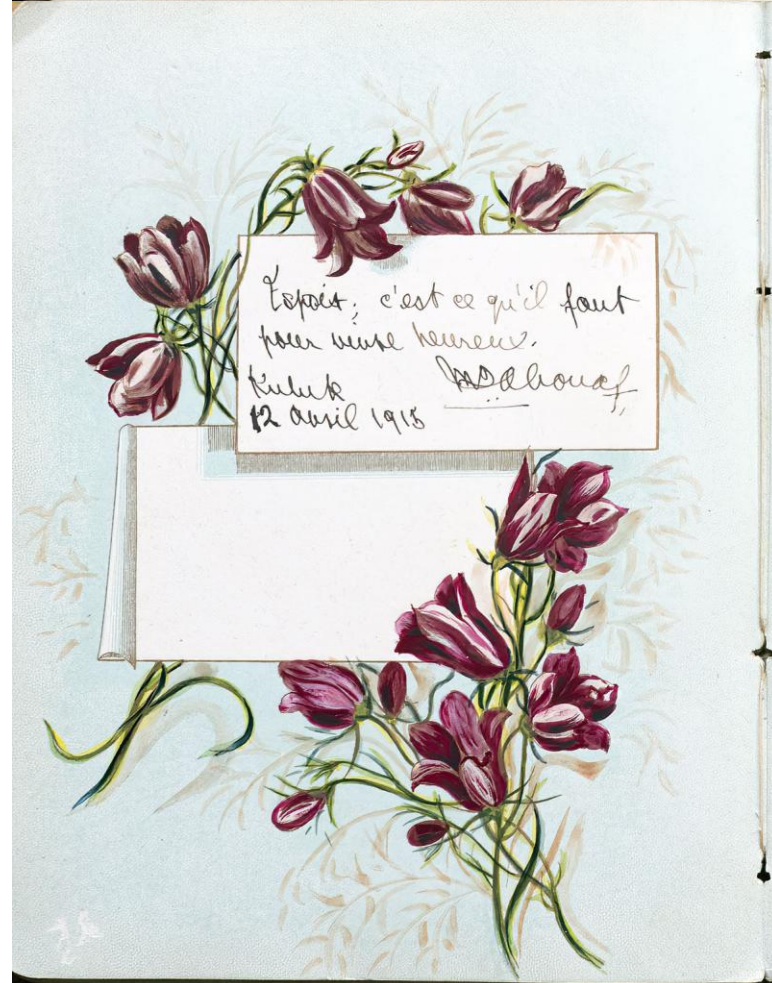 Espoir, c'est ce qu'il faut
pour vivre heureux.
Kuluk
12 avril 1915